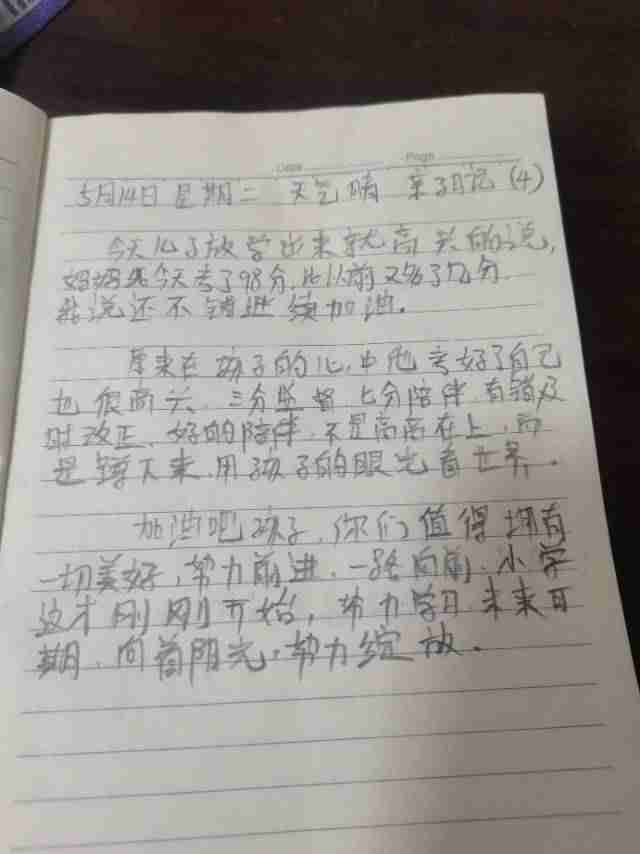 Date
Page
5月14日 星期二 天气晴 亲子日记(4)
今天儿子放学出来就高兴的说,
妈妈我今天考了98分,比以前又多了几分.
我说还不错继续加油。
原来在孩子的心中他考好了自己
也很高兴.三分监督七分陪伴.有错及
时改正、好的陪伴.不是高高在上,而
是蹲下来.用孩子的眼光看世界.
加油吧孩子.你们值得拥有
一切美好,努力前进.一路向前.小学
这才刚刚开始,努力学习.未来可
期.向着阳光.努力绽放.